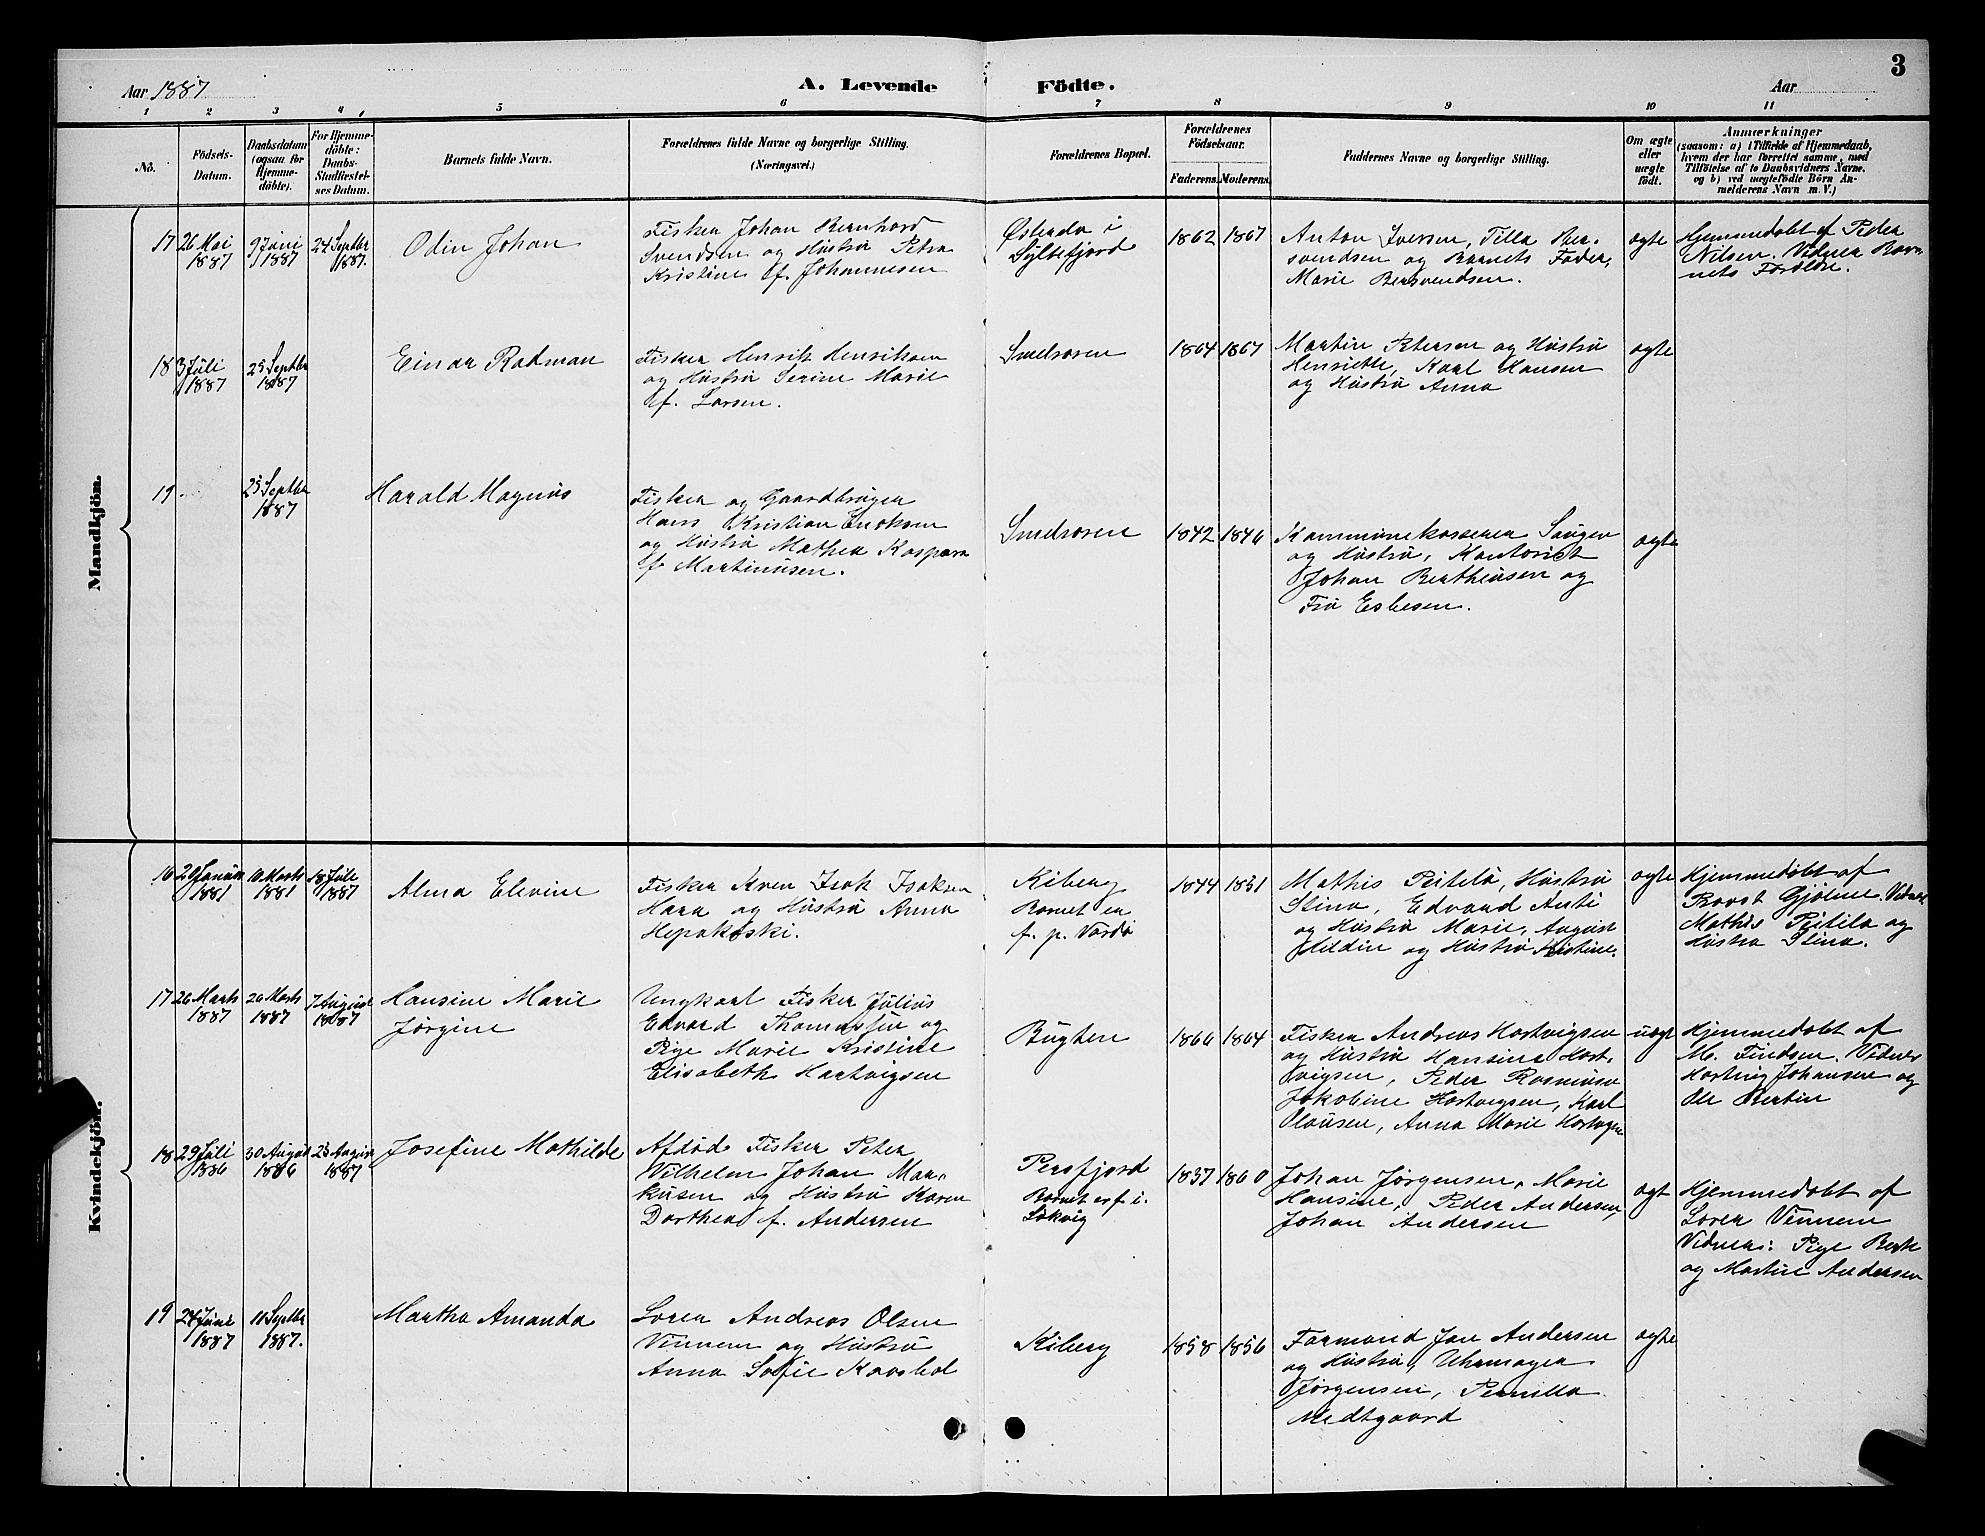 3
Aar 1887
A. Levende Födte.
Aar
1 2 3 4 5 6 7 8 9 10 11
No.
Födsels-
Datum.
Daabsdatum
(ogsaa for
Hjemme-
döbte).
For Hjemme-
döbte:
Daabs-
Stadfæstel-
ses Datum.
Barnets fulde Navn.
Forældrenes fulde Navne og borgerlige Stilling.
(Næringsvei.)
Forældrenes Bopæl.
Forældrenes
Födselsaar.
Faderens.
Moderens.
Faddernes Navne og borgerlige Stilling.
Om ægte
eller
uægte
födt.
Anmærkninger
(saasom: a) i Tilfælde af Hjemmedaab,
hvem der har forrettet samme, med
Tilföielse af to Daabsvidners Navne,
og b) ved uægtefödte Börn An-
melderens Navn m. V.)
Mandkjön.
17
26 Mai
1887
9 Juni
1887
24 Septbr
1887.
Odin Johan
Fisker Johan Bernhard
Svendsen og Hustru Petra
Kristine f. Johannesen
Østerda i
Syltefjord
1862
1867
Anton Iversen, Tilla Ber-
svendsen og Barnets Fader,
Marie Bersvendsen.
ægte
Hjemmedøbt af Peder
Nilsen. Vidner Bar-
nets Forældre.
18
3 Juli
1887
25 Septbr
1887
Einar Radman
Fisker Henrik Henriksen
og Hustru Serine Marie
f. Larsen.
Smelroren
1864
1867
Martin Petersen og Hustru
Henriette, Karl Hansen
og Hustru Anna
ægte
19
25 Septbr
1887
Harald Magnus
Fisker og Gaardbruger
Hans Kristian Eriksen
og Hustru Mathea Kaspara
f. Martinusen.
Smelroren
1842
1846
Kommunekasserer
og Hustru, Kontorist
Johan Berthiusen og
Fru Esbesen.
ægte
Kvindekjön.
16
20 Januar
1881
10 Marts
1881
18 Juli
1887
Alma Elevine
Fisker Kven Isak Isaksen
Hara og Hustru Anna
Hepakoski.
Kiberg
Barnet er
f. p. Vardø
1844
1851
Mathis Pietilä, Hustru
Stina, Edvard Anti
og Hustru Marie, August
Uldin og Hustru Kristine.
ægte
Hjemmedøbt af
Provst Gjølme. Vidner
Mathis Pietila og
Hustru Stina.
17
26 Marts
1887
26 Marts
1887
7 August
1887
Hansine Marie
Jørgine
Ungkarl Fisker Julius
Edvard Thomassen og
Pige Marie Kristine
Elisabeth Hartvigsen
Bugten
1866
1864
Fisker Andreas Hartvigsen
og Hustru Hansine Hart-
vigsen, Peder Rasmussen
Jakobine Hartvigsen, Karl
Olausen, Anna Marie Hartvigsen
uægt
Hjemmedøbt af
M. Findsen. Vidner
Hartvig Johansen og
Ole Bertin
18
29 Juli
1886
30 August
1886
25 August
1887
Josefine Mathilde
Afdøde Fisker Peter
Wilhelm Johan Mar-
kusen og Hustru Karen
Dorthea f. Andersen
Persfjord
Barnet er f. i.
Sakvig
1837
1860
Johan Jørgensen, Marie
Hansine, Peder Andersen,
Johan Andersen
ægt
Hjemmedøbt af
Soren Vinnem
Vidner: Pige Berk
og Martine Andersen
19
24 Juni
1887
11 Septbr
1887.
Martha Amanda
Soren Andreas Olsen
Vinnem og Hustru
Anna Sofie Kavsbol
Kiberg
1858
1856
Formand Jon Andersen
og Hustru, Uhrmager
Jørgensen, Pernilla
Medtgaard
ægte